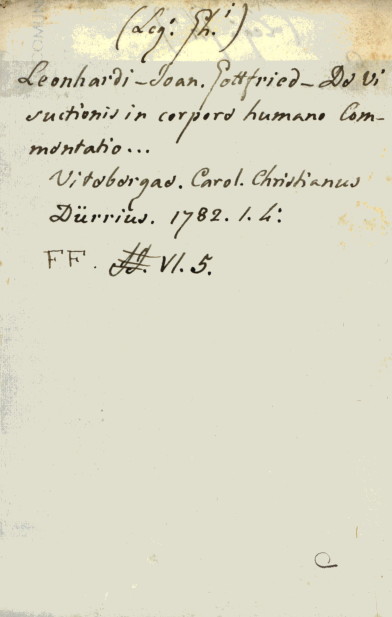 (Leg: Gh.i)
Leonhardi - Joan. Gottfried - De vi
suctionis in corpore humano Com-
mentatio...
Vitebergae. Carol. Christianus
Dürrius. 1782. 1. 4:
FF. VI. 5.